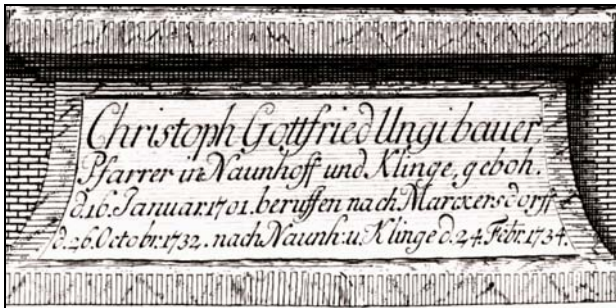 Christoph Gottfried Ungibauer,
Pfarrer in Naunhoff und Klinge, geboh.
d.16. Januar.1701. beruffen nach Marckersdorff
d.26. Octobr.1732. nach Naunh: u. Klinge d.24. Febr.1734.